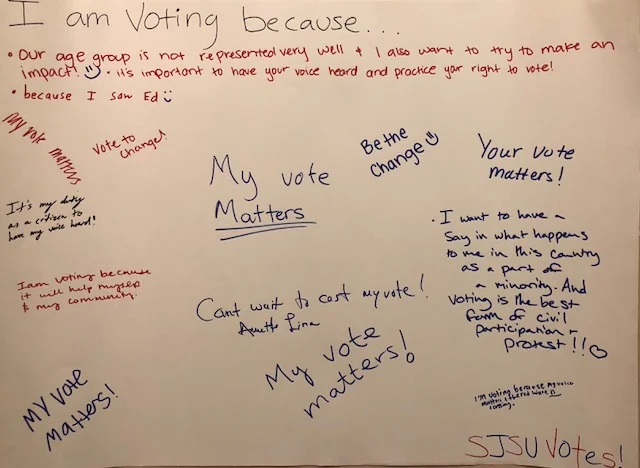 I am Voting because...
• Our age group is not represented very well & I also want to try to make an
impact! • it's important to have your voice heard and practice your right to vote!
• because I saw Ed
My vote matters
Vote to
Change!
Be the
Change
Your vote
matters!
My vote
Matters
It's my duty
as a citizen to
have my voice heard!
• I want to have a
Say in what happens
to me in this country
as a part of
a minority. And
Voting is the best
form of civil
participation &
protest!!
I am voting because
it will help myself
& my community.
Cant wait to cast my vote!
My vote
matters!
MY VOTE
Matters!
I'm voting because my voice
coming.
SJSU Votes!